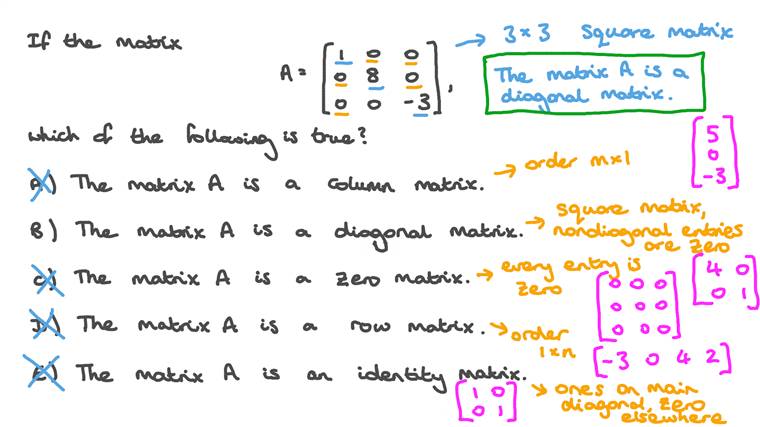 If the matrix
A = [1 0 0
0 8 0
0 0 -3],
→ 3×3 square matrix
The matrix A is a
diagonal matrix.
which of the following is true?
A) The matrix A is a column matrix.
→ order m×1
[5
0
-3]
B) The matrix A is a diagonal matrix.
→ square matrix,
nondiagonal entries
are zero
[4 0
0 1]
C) The matrix A is a zero matrix.
→ every entry is
zero
[0 0 0
0 0 0
0 0 0]
D) The matrix A is a row matrix.
→ order
1×n
[-3 0 4 2]
E) The matrix A is an identity matrix.
[1 0
0 1]
→ ones on main
diagonal, zero
elsewhere